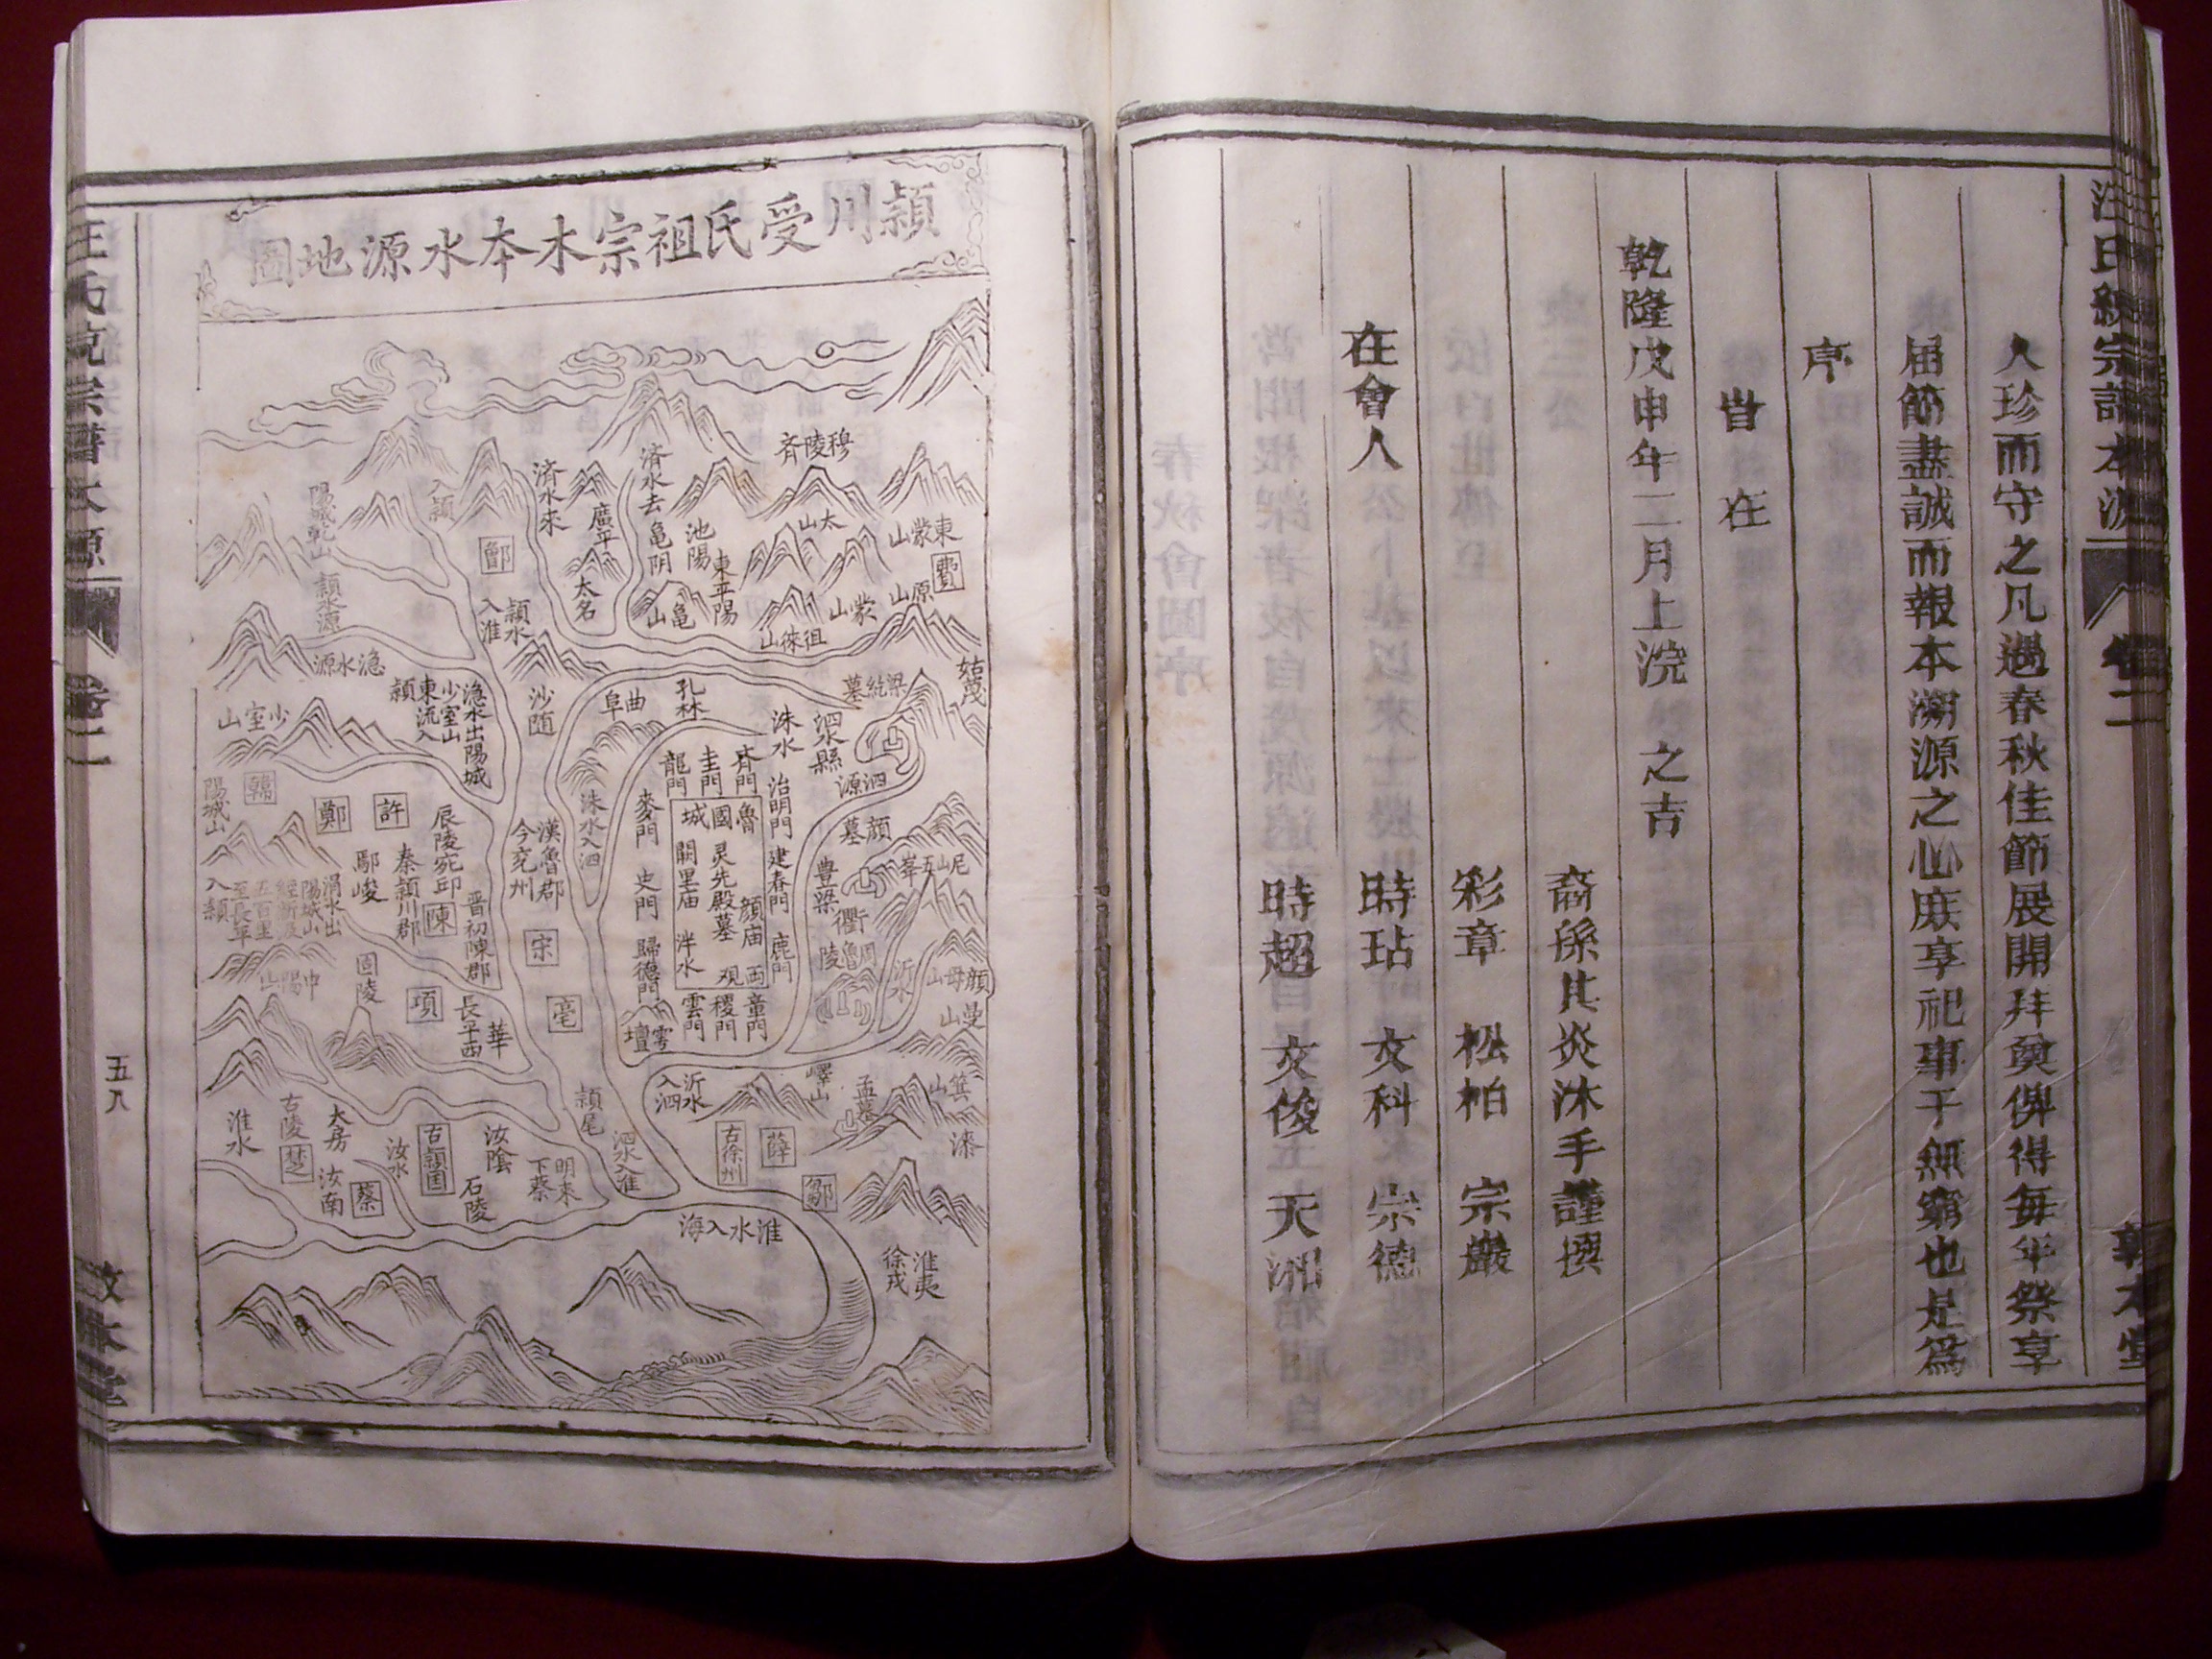 汪氏統宗譜本源
卷二
敦本堂
人珍而守之凡遇春秋佳節展開拜奠俾得每年祭享
届節盡誠而報本溯源之心庶享祀事于無窮也是爲
序
旹在
乾隆戊申年二月上浣之吉
裔孫其炎沐手謹撰
彩章 松柏 宗嚴
在會人 時玷 文科 宗德
時超 文俊 天湘
潁川受氏祖宗木本水源地圖
穆陵齐
済水去
済水來
入潁
陽城乾山
潁水源
廣平
太名
亀阴
池陽
東平陽
太山
東蒙山
費
原山
蒙山
徂徠山
亀山
鄫
潁水
入淮
濦水源
濦水出陽城
少室山
東流入
潁
少室山
沙随
曲阜
孔林
梁紇墓
姑蔑
洙水
泗水縣
泗源
齐門
圭門
龍門
治明門
麥門
洙水入泗
魯國城
顔墓
尼山五峯
豊梁
建春門
灵先殿墓
闕里庙
史門
顔庙
鹿門
泮水
歸德門
西观
童門
稷門
雲門
雩壇
沂水
顔母山
曼山
韓
陽城山
鄭
許
辰陵宛邱
陳
秦潁川郡
鄢峻
漢魯郡
今兖州
晋初陳郡
入潁
宋
亳
固陵
項
長平西
華
沂水
入泗
嶧山
孟墓
箕山
漆
潁尾
泗水入淮
古徐州
薛
鄒
淮水
古陵
楚
大房
汝南
蔡
汝水
古潁国
汝陰
石陵
明東
下蔡
淮水入海
淮夷
徐戎
卷二
五八
敦本堂